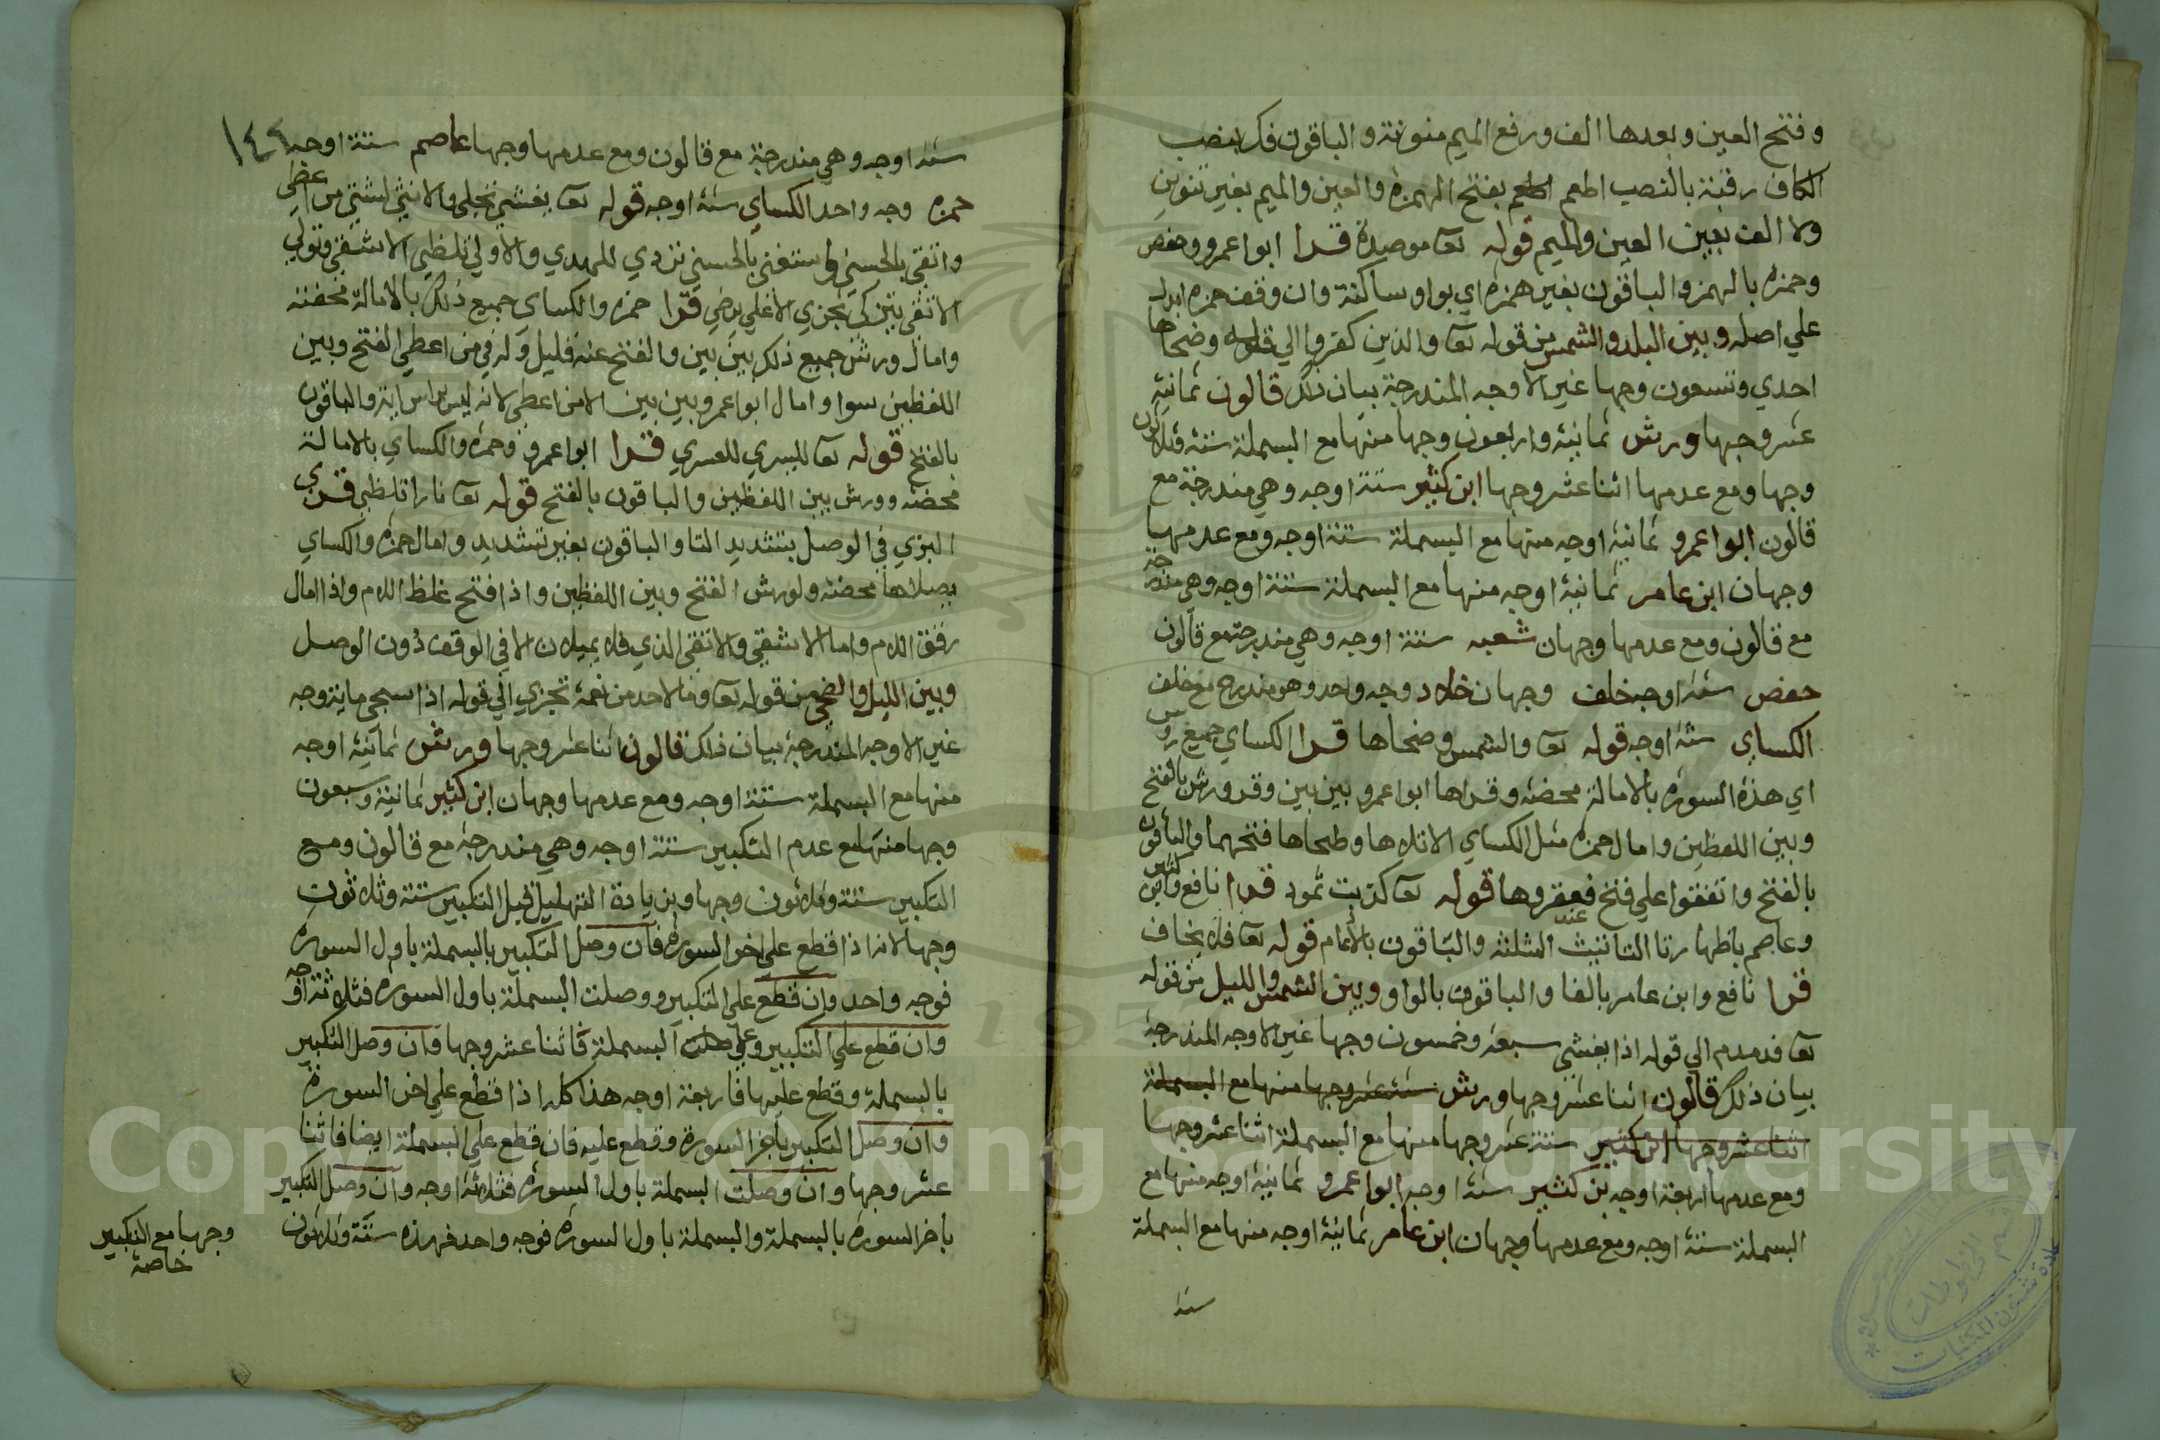 وفتح العين وبعدها الف ورفع الميم منونة والباقون فك بنصب
الكاف رقبة بالنصب اطعم بفتح الهمزة والعين والميم بغير تنوين
ولا الف بين العين والميم قوله تعا موصدة قرا ابوا عمرو وحفص
وحمزه بالهمز والباقون بغير همزه اي بواو ساكنة وان وقف حمزه ابدل
علي اصله وبين البلد والشمس من قوله تعا والذين كفروا الي قوله وضحاها
احدي وتسعون وجها غير الاوجه المندرجة بيان ذلك قالون ثمانية
عشر وجها ورش ثمانية واربعون وجها منها مع البسملة ستة وثلاثون
وجها ومع عدمها اثنا عشر وجها ابن كثير ستة اوجه وهي مندرجة مع
قالون ابوا عمرو ثمانية اوجه منها مع البسملة ستة اوجه ومع عدمها
وجهان ابن عامر ثمانية اوجه منها مع البسملة ستة اوجه وهي مندرجة
مع قالون ومع عدمها وجهان شعبه ستة اوجه وهي مندرجة مع قالون
حفص ستة اوجه خلف وجهان خلاد وجه واحد وهو مندرج مع خلف
الكساي ستة اوجه قوله تعا والشمس وضحاها قرا الكساي جميع روس
اي هذه السوره بالامالة محضه وقراها ابوا عمرو بين بين وقرا ورش بالفتح
وبين اللفظين وامال حمزه مثل الكساي الا تلاها وطحاها فتحهما والباقون
بالفتح واتفقوا علي فتح فعقروها قوله تعا كذبت ثمود قرا نافع وابن كثير
وعاصم باظهار تا التانيث عند الثلثه والباقون بالادغام قوله تعا فلا يخاف
قرا نافع وابن عامر بالفا والباقون بالواو وبين الشمس والليل من قوله
تعا فدمدم الي قوله اذا يغشي سبعة وخمسون وجها غير الاوجه المندرجة
بيان ذلك قالون اثنا عشر وجها ورش ستة عشر وجها منها مع البسملة
اثنا عشر وجها ابن كثير ستة عشر وجها منها مع البسملة اثنا عشر وجها
ومع عدمها اربعة اوجه بن كثير ستة اوجه ابوا عمرو ثمانية اوجه منها مع
البسملة ستة اوجه ومع عدمها وجهان ابن عامر ثمانية اوجه منها مع البسملة
ستة
١٤٤
ستة اوجه وهي مندرجة مع قالون ومع عدمها وجها عاصم ستة اوجه
حمزه وجه واحد الكساي ستة اوجه قوله تعا يغشي تجلي والانثي لشتي من اعطي
واتقي بالحسني واستغني بالحسني تردي للهدي والاولي تلظي الاشقي وتولي
الاتقي يتزكي تجزي الاعلي يرضي قرا حمزه والكساي جميع ذلك بالامالة محضة
وامال ورش جميع ذلك بين بين والفتح عنه قليل وله في من اعطي الفتح وبين
اللفظين سوا وامال ابوا عمرو بين بين الا من اعطي لانه ليس براس اية والباقون
بالفتح قوله تعا لليسري للعسري قرا ابوا عمرو وحمزه والكساي بالامالة
محضه وورش بين اللفظين والباقون بالفتح قوله تعا نارا تلظي قرا
البزي في الوصل بتشديد التا والباقون بغير تشديد وامال حمزه والكساي
يصلاها محضه ولورش الفتح وبين اللفظين واذا فتح غلظ اللام واذا امال
رقق اللام واما الاشقي والاتقي الذي فلا يميلان الا في الوقف دون الوصل
وبين الليل والضحي من قوله تعا وما لاحد من نعمة تجزي الي قوله اذا سجي ماية وجه
غير الاوجه المندرجة بيان ذلك قالون اثنا عشر وجها ورش ثمانية اوجه
منها مع البسملة ستة اوجه ومع عدمها وجهان ابن كثير ثمانية وسبعون
وجها منها مع عدم التكبير ستة اوجه وهي مندرجة مع قالون ومع
التكبير ستة وثلاثون وجها وبزيادة التهليل قبل التكبير ستة وثلاثون
وجها لانه اذا قطع علي اخر السوره فان وصل التكبير بالبسملة باول السورة
فوجه واحد وان قطع علي التكبير ووصلت البسملة باول السوره فثلاثة اوجه
وان قطع علي التكبير وعلي البسملة فاثنا عشر وجها وان وصل التكبير
بالبسملة وقطع عليها فاربعة اوجه هذا كله اذا قطع علي اخر السورة
وان وصل التكبير باخر السورة وقطع عليه فان قطع علي البسملة ايضا فاثنا
عشر وجها وان وصلت البسملة باول السوره فثلاثة اوجه وان وصل التكبير
باخر السوره بالبسملة والبسملة باول السوره فوجه واحد فهذه ستة وثلاثون
وجها مع التكبير
خاصة
Copyright © King Saud University
1957